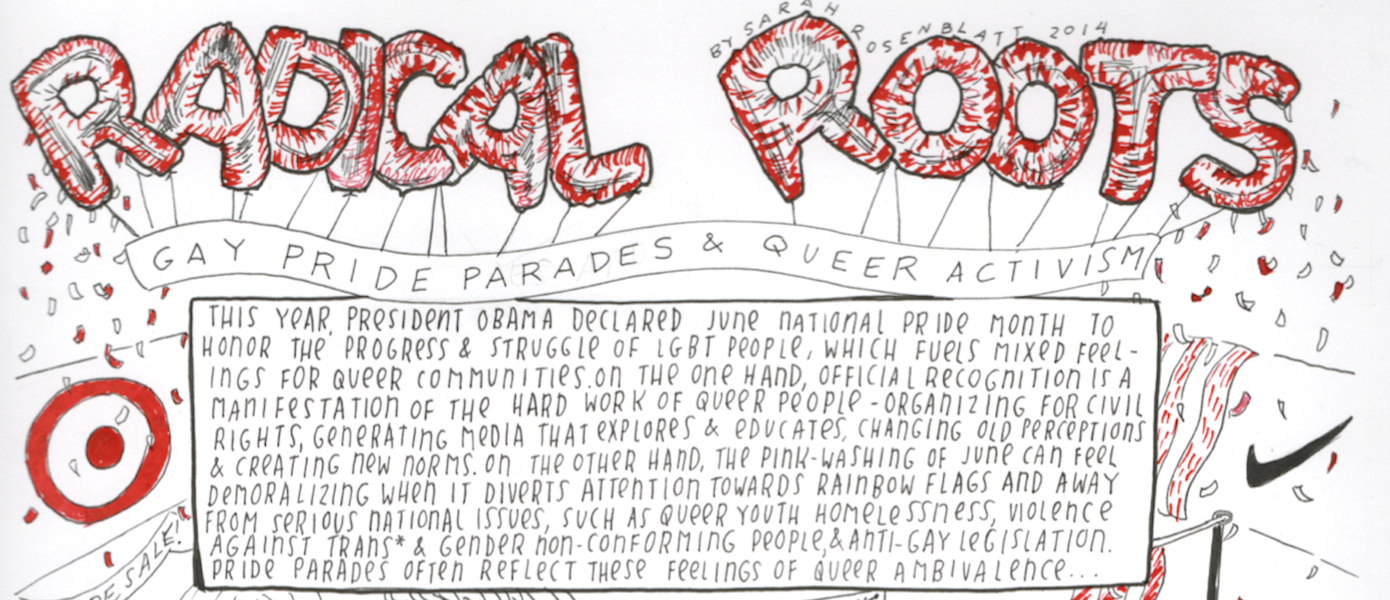 BY SARAH ROSENBLATT 2014
RADICAL ROOTS
GAY PRIDE PARADES & QUEER ACTIVISM
THIS YEAR, PRESIDENT OBAMA DECLARED JUNE NATIONAL PRIDE MONTH TO
HONOR THE PROGRESS & STRUGGLE OF LGBT PEOPLE, WHICH FUELS MIXED FEEL-
INGS FOR QUEER COMMUNITIES. ON THE ONE HAND, OFFICIAL RECOGNITION IS A
MANIFESTATION OF THE HARD WORK OF QUEER PEOPLE - ORGANIZING FOR CIVIL
RIGHTS, GENERATING MEDIA THAT EXPLORES & EDUCATES, CHANGING OLD PERCEPTIONS
& CREATING NEW NORMS. ON THE OTHER HAND, THE PINK-WASHING OF JUNE CAN FEEL
DEMORALIZING WHEN IT DIVERTS ATTENTION TOWARDS RAINBOW FLAGS AND AWAY
FROM SERIOUS NATIONAL ISSUES, SUCH AS QUEER YOUTH HOMELESSNESS, VIOLENCE
AGAINST TRANS* & GENDER NON-CONFORMING PEOPLE, & ANTI-GAY LEGISLATION.
PRIDE PARADES OFTEN REFLECT THESE FEELINGS OF QUEER AMBIVALENCE...
SALE!